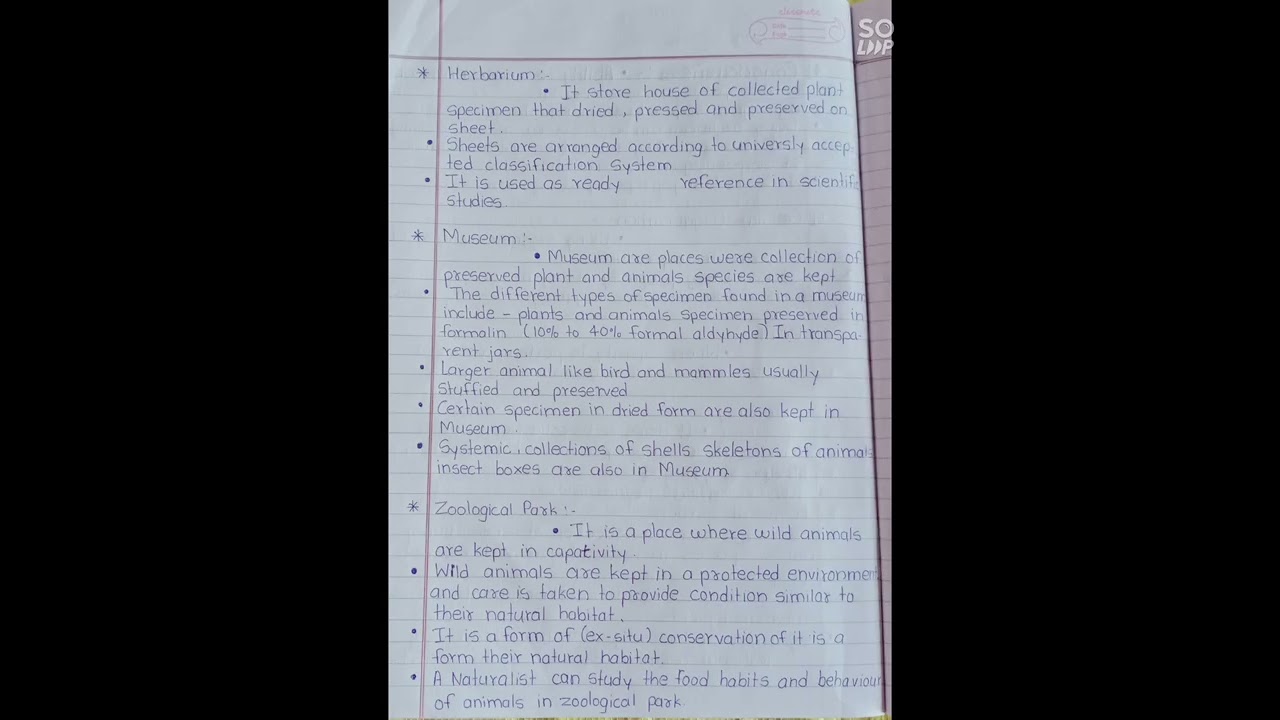 classmate
Date
Page
SO
LOOP
* Herbarium :-
• It store house of collected plant
specimen that dried, pressed and preserved on
sheet.
• Sheets are arranged according to universly accep-
ted classification system
• It is used as ready reference in scientific
studies.
* Museum :-
• Museum are places were collection of
preserved plant and animals species are kept
• The different types of specimen found in a museum
include - plants and animals specimen preserved in
formalin (10% to 40% formal aldyhyde) In transpa-
rent jars.
• Larger animal like bird and mammles usually
stuffied and preserved
• Certain specimen in dried form are also kept in
Museum.
• Systemic, collections of shells skeletons of animals
insect boxes are also in Museum
* Zoological Park :-
• It is a place where wild animals
are kept in capativity.
• Wild animals are kept in a protected environment
and care is taken to provide condition similar to
their natural habitat.
• It is a form of (ex-situ) conservation of it is a
form their natural habitat.
• A Naturalist can study the food habits and behaviour
of animals in zoological park.